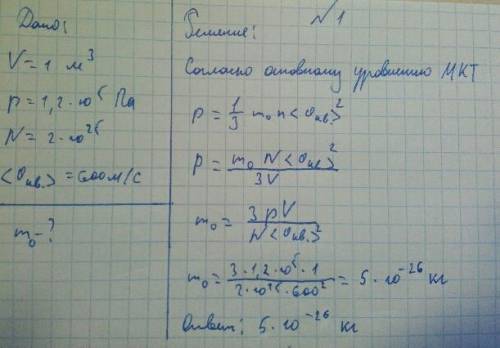 №1
Дано:
V = 1 м³
p = 1,2 · 10⁵ Па
N = 2 · 10²⁵
<υкв.> = 600 м/с
m₀ - ?
Решение:
Согласно основному уровнению МКТ
p = 1/3 m₀ n <υкв.>²
p = m₀ N <υкв.>² / 3V
m₀ = 3 p V / N <υкв.>²
m₀ = 3 · 1,2 · 10⁵ · 1 / 2 · 10²⁵ · 600² = 5 · 10⁻²⁶ кг
Ответ: 5 · 10⁻²⁶ кг